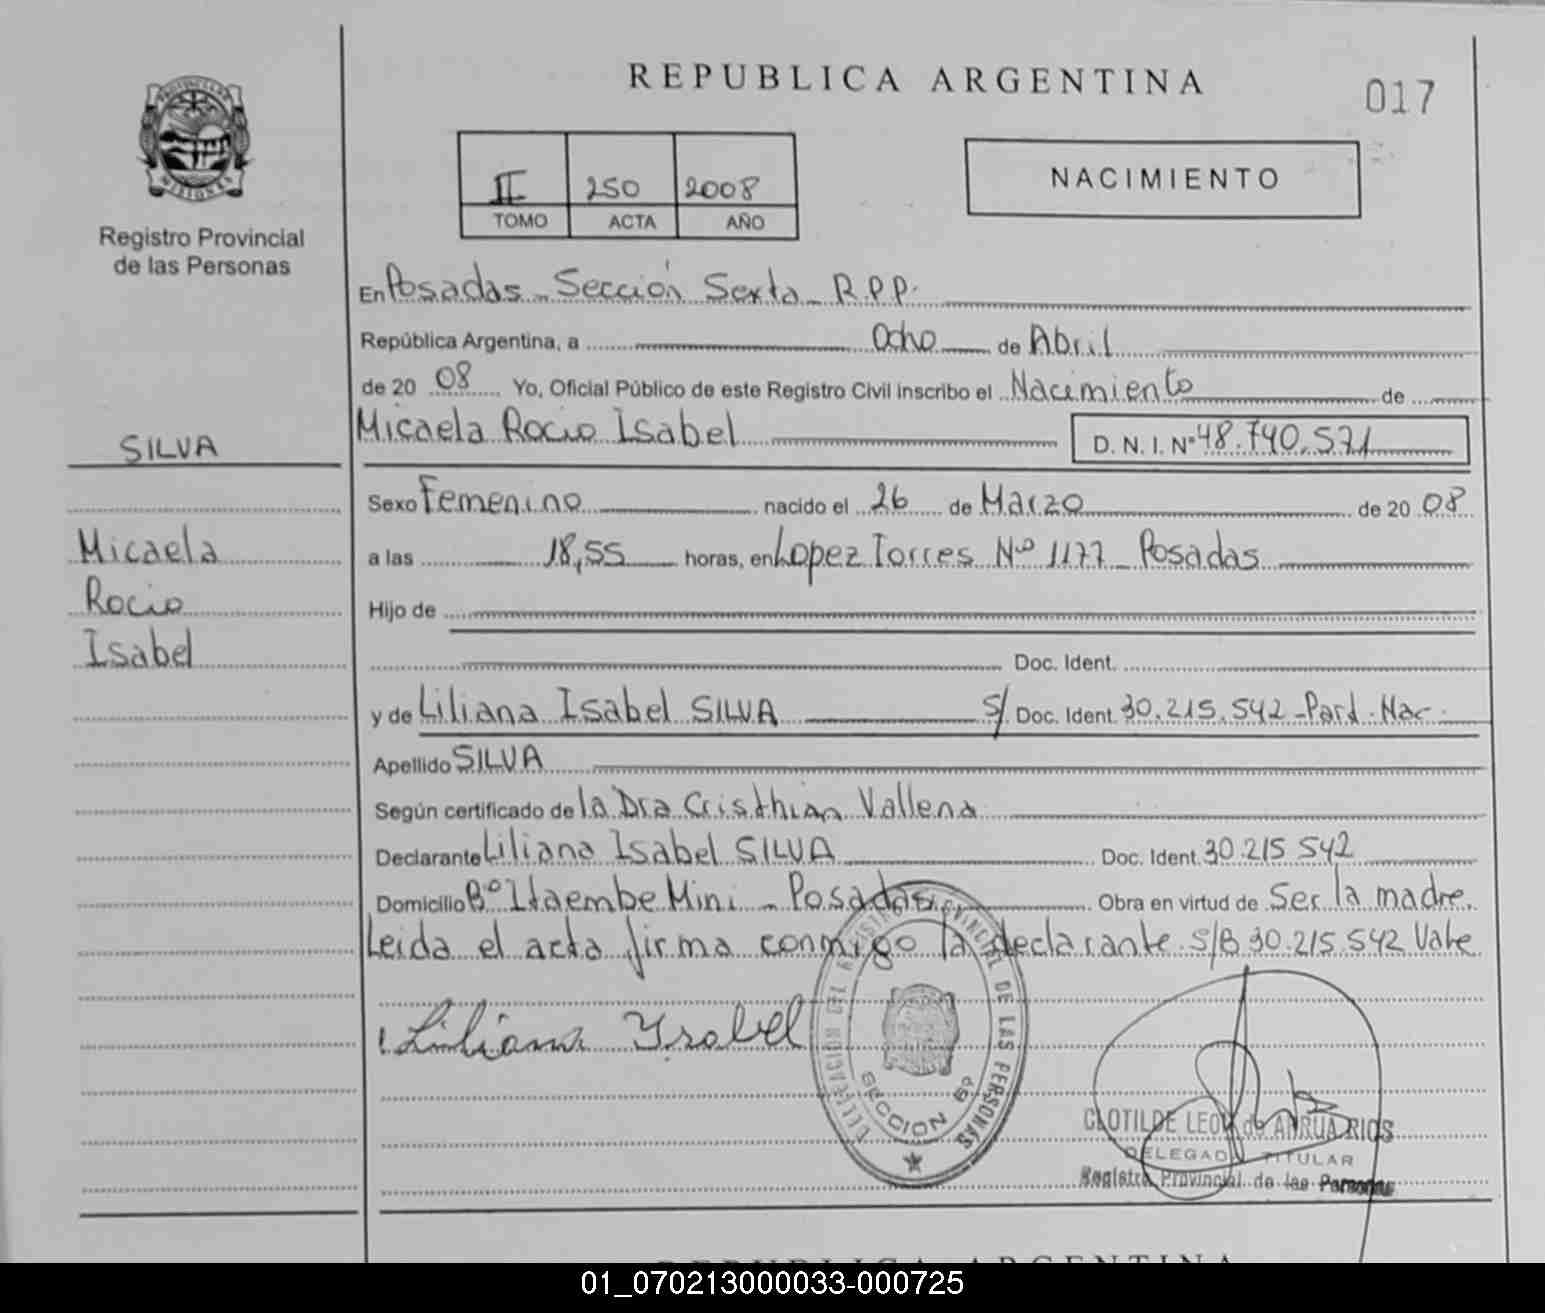 REPUBLICA ARGENTINA
017
PROVINCIA DE MISIONES
Registro Provincial
de las Personas
II 250 2008
TOMO ACTA AÑO
NACIMIENTO
En Posadas - Sección Sexta - R.P.P.
República Argentina, a Ocho de Abril
de 20 08 Yo, Oficial Público de este Registro Civil inscribo el Nacimiento de
Micaela Rocio Isabel D. N. I. Nº 48.740.571
SILVA
Micaela
Rocio
Isabel
Sexo Femenino nacido el 26 de Marzo de 20 08
a las 18,55 horas, en Lopez Torres Nº 1177 - Posadas
Hijo de
Doc. Ident.
y de Liliana Isabel SILVA S/ Doc. Ident. 30.215.542 - Part. Nac.
Apellido SILVA
Según certificado de la Dra Cristhian Vallena
Declarante Liliana Isabel SILVA Doc. Ident. 30.215 542
Domicilio Bº Itaembe Mini - Posadas Obra en virtud de Ser la madre.
Leida el acta firma conmigo la declarante. S/B 30.215.542 Vale
Liliana Ysabel
DELEGACION DEL REGISTRO PROVINCIAL DE LAS PERSONAS
SECCION 6º
CLOTILDE LEON de ARRUA RIOS
DELEGADA TITULAR
Registro Provincial de las Personas
REPUBLICA ARGENTINA
01_070213000033-000725